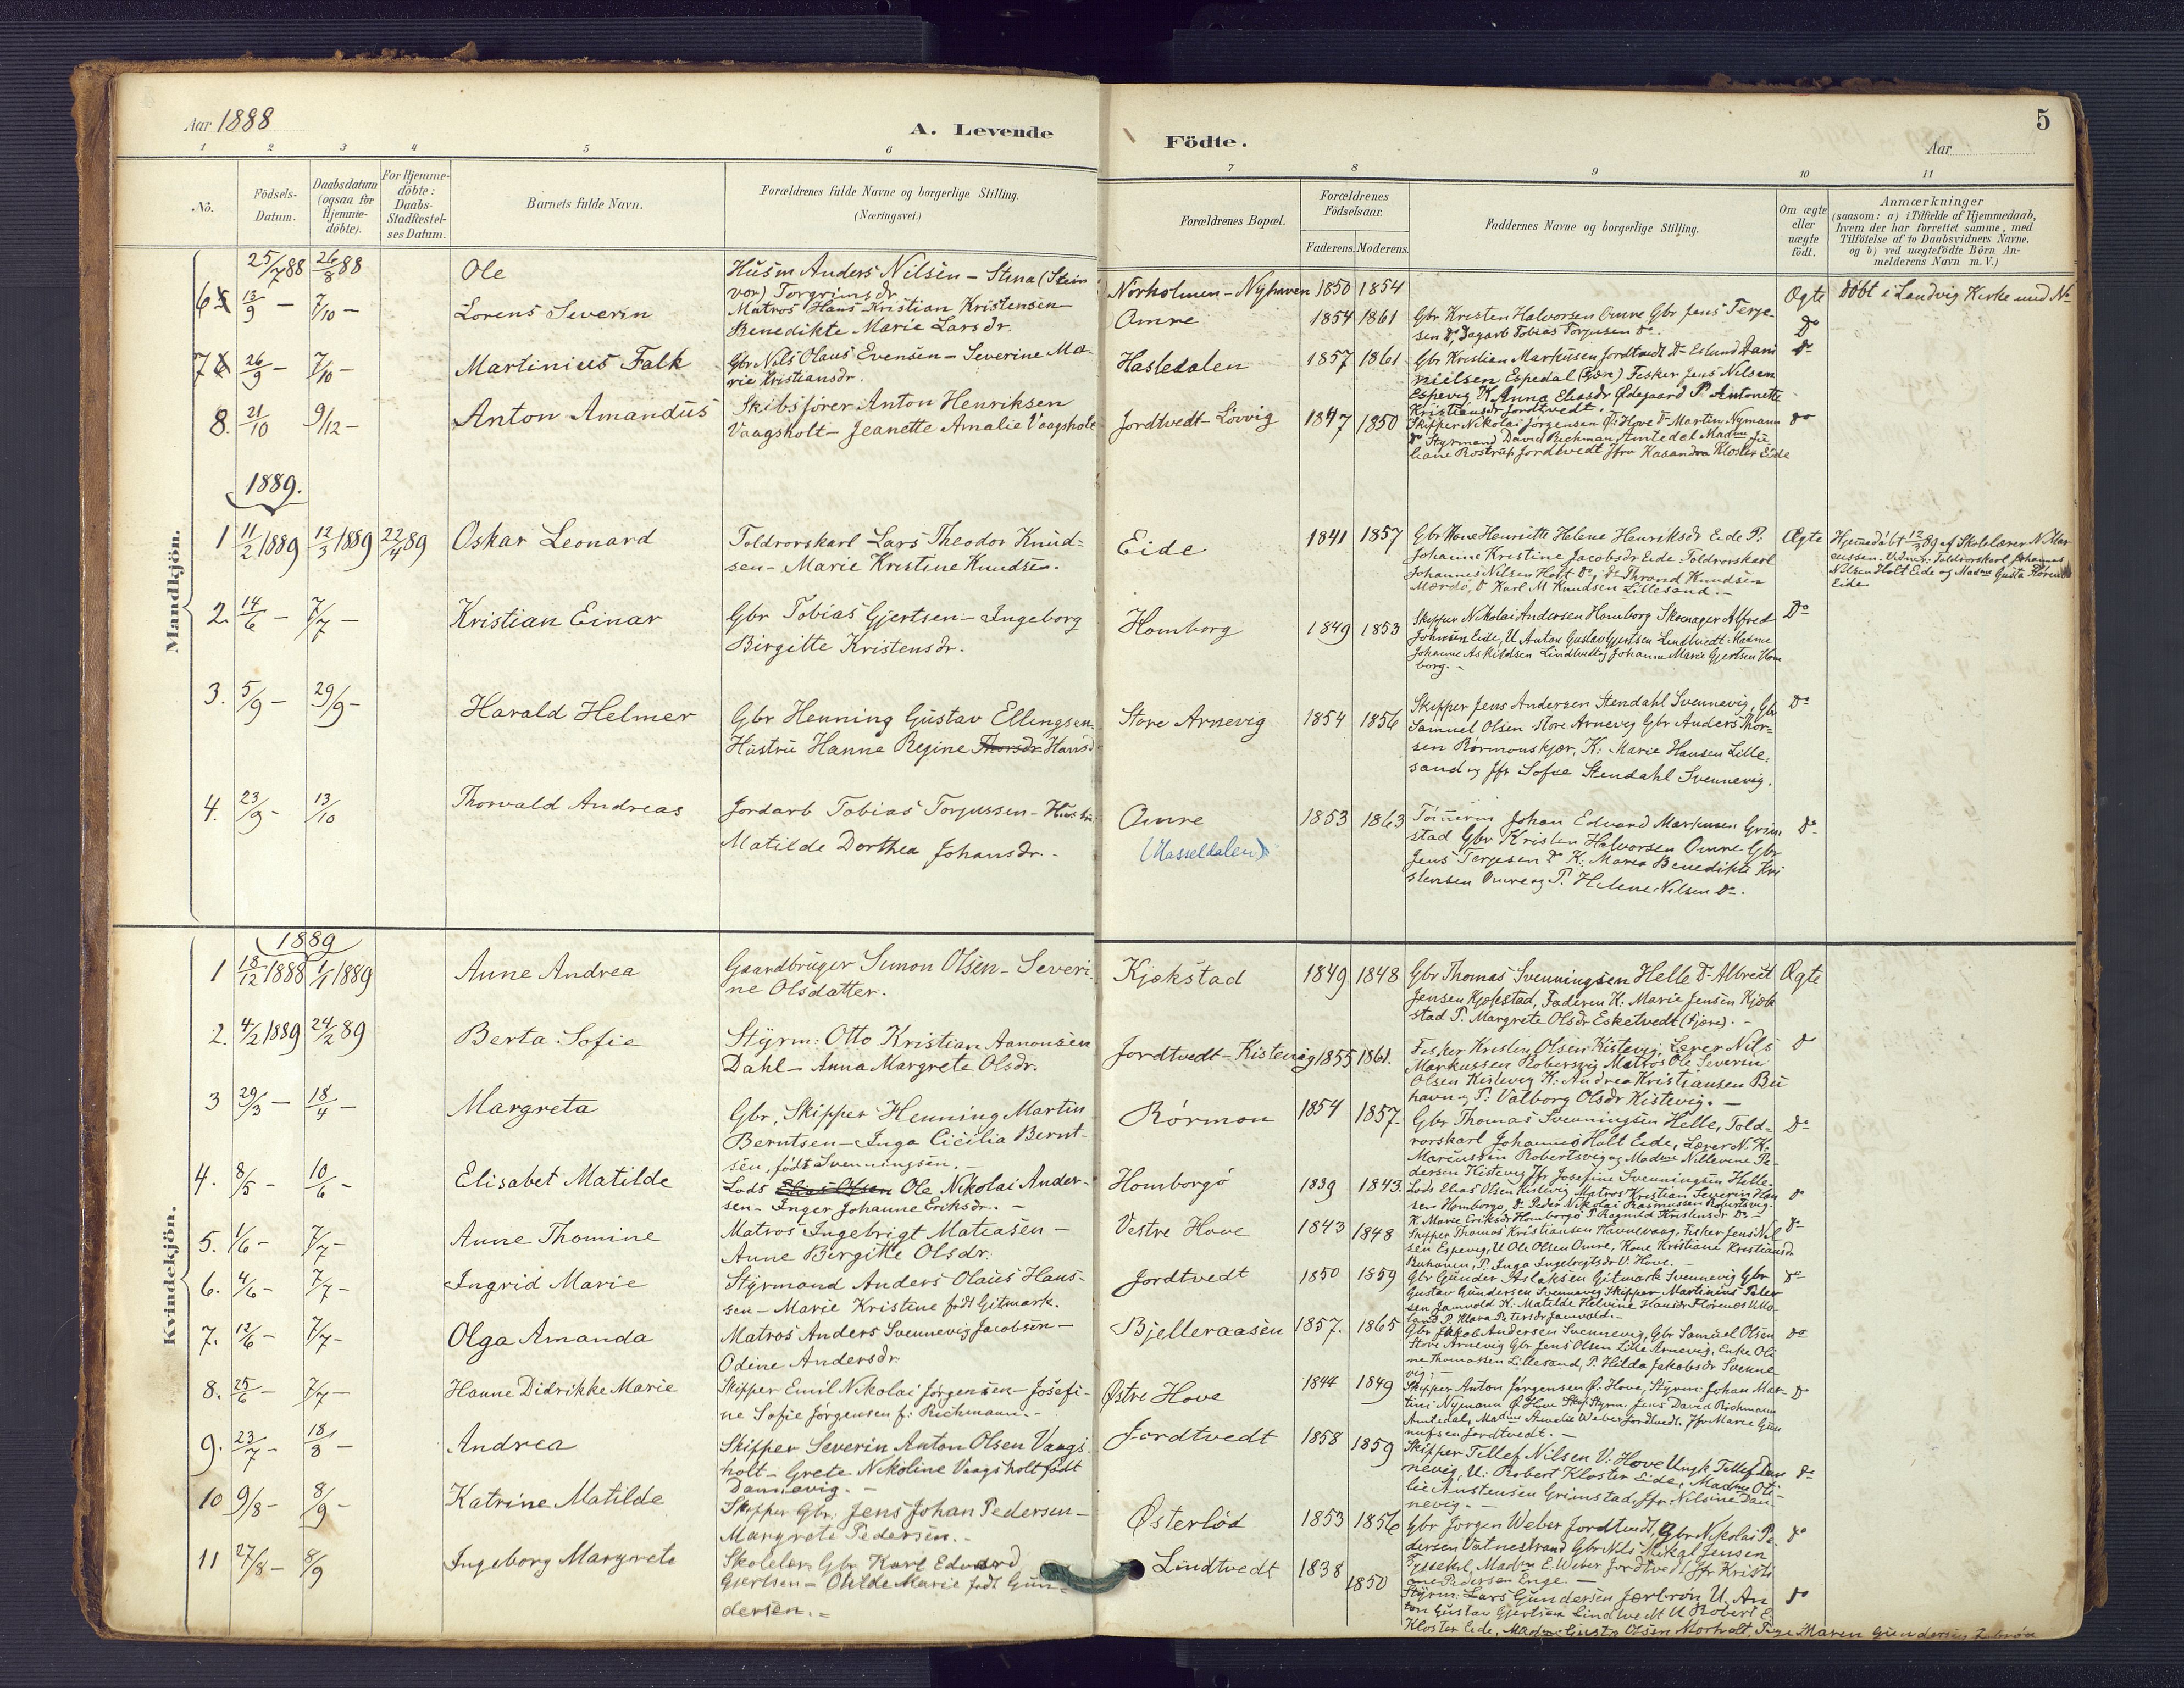 Aar 1888
A. Levende
Födte.
Aar
5
1 2 3 4 5 6 7 8 9 10 11
No.
Födsels-
Datum.
Daabsdatum
(ogsaa for
Hjemme-
döbte).
For Hjemme-
döbte:
Daabs-
Stadfæstel-
ses Datum.
Barnets fulde Navn.
Forældrenes fulde Navne og borgerlige Stilling.
(Næringsvei.)
Forældrenes Bopæl.
Forældrenes
Födselsaar.
Faderens. Moderens.
Faddernes Navne og borgerlige Stilling.
Om ægte
eller
uægte
födt.
Anmærkninger
(saasom: a) i Tilfælde af Hjemmedaab,
hvem der har forrettet samme, med
Tilföielse af to Daabsvidners Navne,
og b) ved uægtefödte Börn An-
melderens Navn m. V.)
Mandkjön.
25/7 88 26/8 88 Ole
Husm Anders Nilsen - Stina (Stein
vor) Torgrimsdr
Nørholmen - Nyhaven 1850 1854
Ægte
Døbt i Landvig Kirke und No
6 13/9 - 7/10 - Lorens Severin
Matros Hans Kristian Kristensen
Benedikte Marie Larsdr.
Omre 1854 1861
Gbr Kristen Halvorsen Omre Gbr Jens Terje-
sen Do, Dagarb Tobias Torjusen Do.
Do
7 26/9 - 7/10 - Martinius Falk
Gbr Nils Olaus Evensen - Severine Ma-
rie Kristiansdr.
Hasledalen 1857 1861
Gbr Kristian Markusen Jordtvedt Do Eslund Dani
nielsen Espedal (Fjære) Fisker Jens Nilsen
Espevig K. Anna Eliasdr Ødegaard P. Antonette
Kristiansdr Jordtvedt.
Do
8. 21/10 9/12 - Anton Amandus
Skibsfører Anton Henriksen
Vaagsholt - Jeanette Amalie Vaagsholt
Jordtvedt - Løvvig 1847 1850
Skipper Nikolai Jørgensen Ø: Hove Do Martin Nymann
Do Styrmand David Richman Amtedal Madme Ju
liane Rostrup Jordtvedt Jfr Kasandra Kloster Eide
Do
1889.
1 11/2 1889 12/3 1889 22/4 89 Oskar Leonard
Toldrorskarl Lars Theodor Knud-
sen - Marie Kristine Knudsen.
Eide 1841 1857
Gbr Kone Henriette Helene Henriksdr Eide P.
Johanne Kristine Jacobsdr Eide Toldrorskarl
Johannes Nilsen Holt Do, Do Thrond Knudsen
Mærdø, Do Karl M Knudsen Lillesand. -
Ægte
Hjemmedøbt 12/3 89 af Skolelærer N Mar
cussen. Vidner: Toldrorskarl Johannes
Nilsen Holt Eide og Madme Gusta Florenes
Eide
2. 14/6 - 7/7 - Kristian Einar
Gbr Tobias Gjertsen - Ingeborg
Birgitte Kristensdr.
Homborg 1849 1853
Skipper Nikolai Andersen Homborg Skomager Alfred
Johnsen Eide, U. Anton Gustav Gjertsen Lindtvedt Madme
Johanne Askildsen Lindtvedt og Johanne Marie Gjertsen Hom
borg. -
Do
3. 5/9 - 29/9 - Harald Helmer
Gbr Henning Gustav Ellingsen.
Hustru Hanne Regine Thorsdr Hansd
Store Arnevig 1854 1856
Skipper Jens Andersen Stendahl Svennevig, Gbr
Samuel Olsen Store Arnevig Gbr Anders Thor-
sen Rørmonskjær, K: Marie Hansen Lille-
sand og Jfr Sofie Stendahl Svennevig.
Do
4. 23/9 - 13/10 Thorvald Andreas
Jordarb Tobias Torjussen - Hustru
Matilde Dorthea Johansdr. -
Omre 1853 1863
(Hasseldalen)
Tømmerm Johan Edvard Markusen Grim
stad Gbr Kristen Halvorsen Omre Gbr
Jens Terjesen Do K: Maria Benedikte Kri
stensen Omre og P. Helene Nilsen Do.
Do
Kvindekjön.
1889
1 18/12 1888 1/1 1889 Anne Andrea
Gaardbruger Simon Olsen - Severi-
ne Olsdatter.
Kjøkstad 1849 1848
Gbr Thomas Svenningsen Helle Do Albreit
Jensen Kjøkstad, Faderen K: Marie Jensen Kjøk
stad P. Margrete Olsdr Esketvedt (Fjære). -
Ægte
2. 4/2 1889 24/2 89 Berta Sofie
Styrm: Otto Kristian Aanonsen
Dahl - Anna Margrete Olsdr.
Jordtvedt - Kistevig 1855 1861.
Fisker Kristen Olsen Kistevig, Lærer Nils
Markussen Robersvig Matros Ole Severin
Olsen Kistevig K: Andrea Kristiansen Bu
havn og P. Valborg Olsdr Kistevig. -
Do
3 29/3 - 18/4 - Margreta
Gbr, Skipper Henning Martin
Berntsen - Inga Cicilia Bernt-
sen, født Svenningsen. -
Rørmon 1854 1857.
Gbr Thomas Svenningsen Helle, Told-
rorskarl Johannes Holt Eide, Lærer N. K.
Marcussen Robertsvig og Madme Nillevine Pe-
dersen Kistevig Jfr Josefine Svenningsen Helle.
Do
4. 8/5 - 10/6 - Elisabet Matilde
Lods Elias Olsen Ole Nikolai Ander-
sen - Inger Johanne Eriksdr. -
Homborgø 1839 1843.
Lods Elias Olsen Kistevig Matros Kristian Severin Han
sen Homborgø, Do Peder Nikolai Rasmussen Robertsvig.
K. Marie Eriksdr Homborgø P Ragnild Kristensdr Do -
Do
5. 1/6 - 7/7 - Anne Thomine
Matros Ingebrigt Matiasen -
Anne Birgitte Olsdr.
Vestre Hove 1843 1848
Skipper Thomas Kristiansen Havnevaag, Fisker Jens Nil
sen Espevig, U Ole Olsen Omre, Kone Kristiane Kristiansdr
Buhaven, P. Inga Ingebrigtsdr V. Hove. -
Do
6. 4/6 - 7/7 - Ingrid Marie
Styrmand Anders Olaus Hans-
sen - Marie Kristine født Gitmark.
Jordtvedt 1850 1859
Gbr Gunder Aslaksen Gitmark Svennevig Gbr
Gustav Gundersen Svennevig Skipper Martinius Peter
sen Jamvold K: Matilde Helvine Hansdr Florenes
land P. Klara Petersdr Jamvold. -
Do
7. 12/6 - 7/7 - Olga Amanda
Matros Anders Svennevig Jacobsen -
Odine Andersdr.
Bjelleraasen 1857. 1865
Gbr Jakob Andersen Svennevig, Gbr Samuel Olsen
Store Arnevig Gbr Jens Olsen Lille Arnevig, Enke Oli
ne Thomassen Lillesand, P. Hilda Jakobsdr Svenne-
vig. -
Do
8. 25/6 - 7/7 - Hanne Didrikke Marie
Skipper Emil Nikolai Jørgensen - Josefi-
ne Sofie Jørgensen f: Richmann. -
Østre Hove 1844 1849
Skipper Anton Jørgensen Ø: Hove, Styrm: Johan Mar-
tini Nymann Ø Hove Styrm. Jens David Richmann
Amtedal, Madme Amalie Weber Jordtvedt. Jfr Marie Gun
nufsen Jordtvedt. -
Do
9. 23/7 - 18/8 - Andrea
Skipper Severin Anton Olsen Vaags
holt - Grete Nikoline Vaagsholt født
Dannevig. -
Jordtvedt 1858 1859
Skipper Tellef Nilsen V: Hove Ungk Tellef Dan
nevig, U: Robert Kloster Eide, Madme Oti-
lie Austensen Grimstad, Jfr. Nilsine Dan-
nevig. -
Do
10 9/8 - 8/9 - Katrine Matilde
Skipper Gbr. Jens Johan Pedersen -
Margrete Pedersen. -
Østerlød 1853 1856
Gbr Jørgen Weber Jordtvedt, Gbr Nikolai Pe-
dersen Vatnestrand Gbr Nils Mikal Jensen
Tyssekil, Madm E. Weber Jordtvedt Jfr Kristi
ane Pedersen Enge. -
Do
11 27/8 - 8/9 Ingeborg Margrete
Skolelær Gbr Karl Edvard
Gjertsen - Otilde Marie født Gun-
dersen. -
Lindtvedt 1838 1850
Styrm: Lars Gundersen Jærtrøn U. An
ton Gustav Gjertsen Lindtvedt U Robert E.
Kloster Eide, Madme Gusta Olsen Morholt, Pige Maren Gundersen
Do